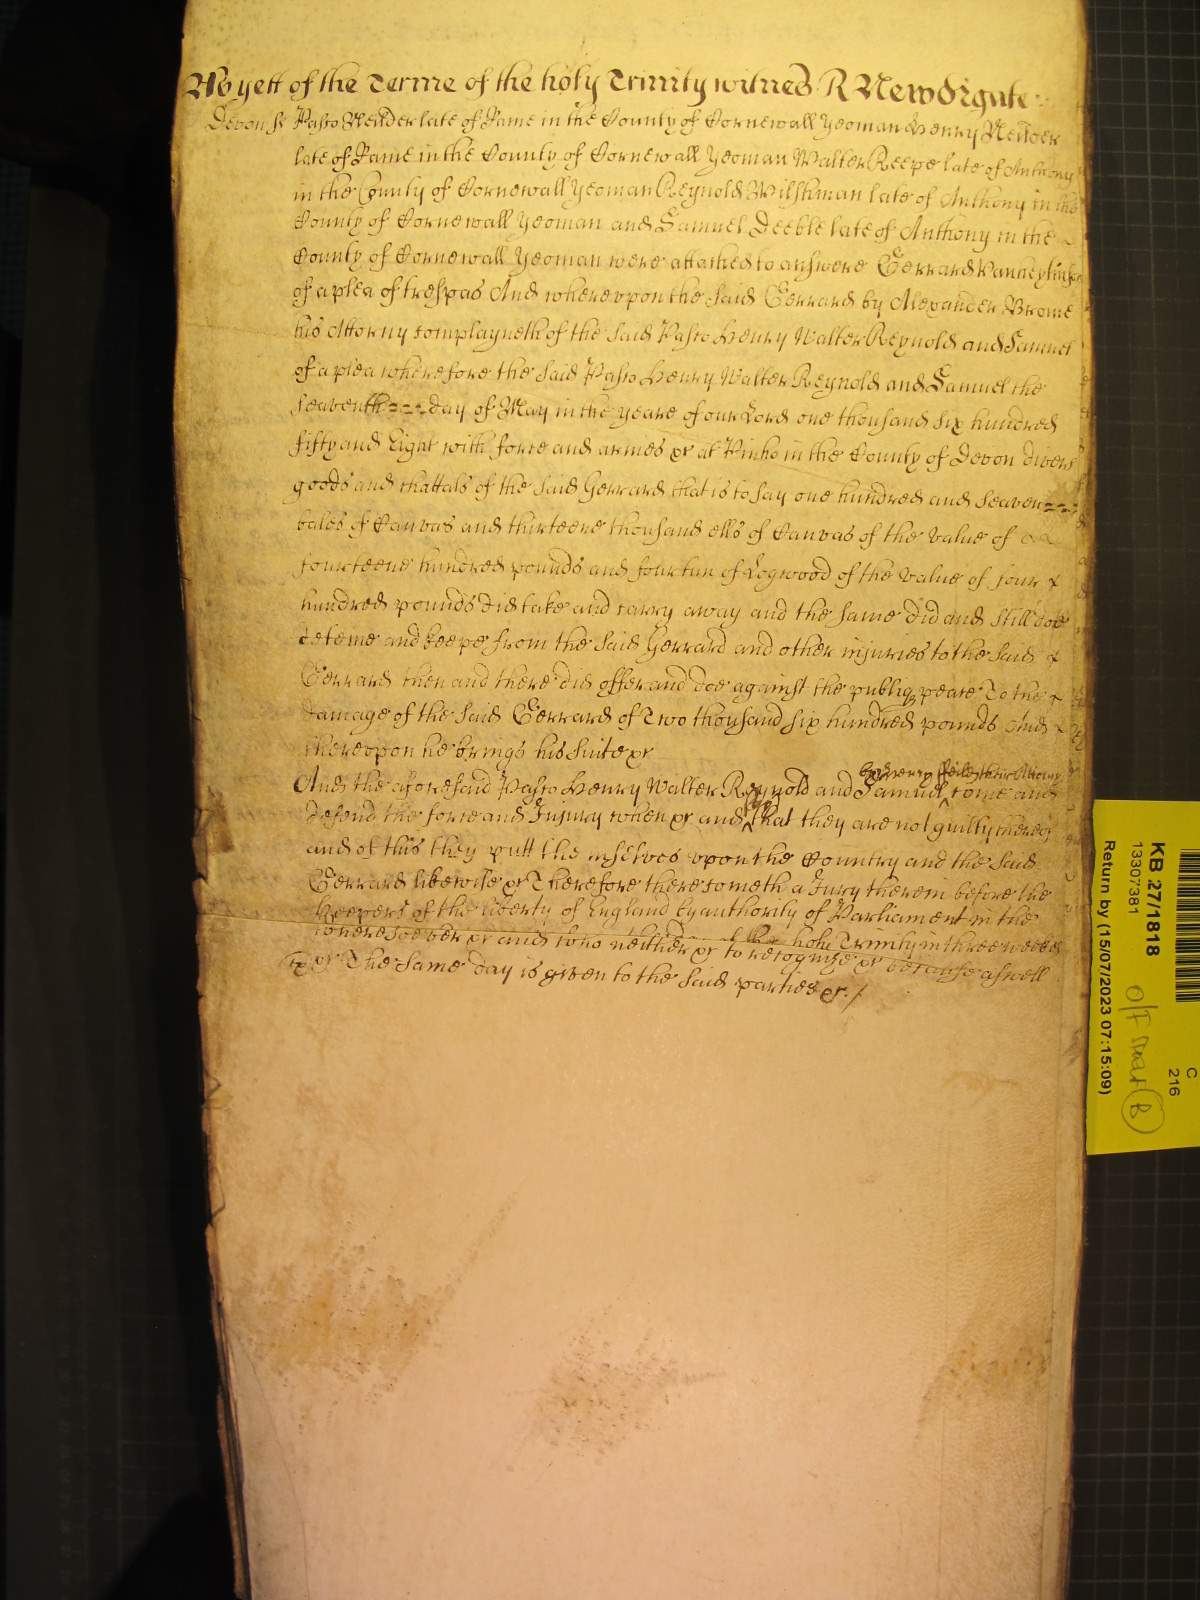 As yett of the Terme of the holy Trinity witnes R Newdigate
Devon ss Pasco Neuder late of Rame in the County of Cornewall Yeoman Henry Neuder
late of Rame in the County of Cornewall Yeoman Walter Keepe late of Anthony
in the County of Cornewall Yeoman Reynold Wilshman late of Anthony in the
County of Cornewall Yeoman and Samuel Deeble late of Anthony in the
County of Cornewall Yeoman were attached to answere Gerrard Vanheythusen
of a plea of trespas And whereupon the said Gerrard by Alexander Brome
his Attorny complayneth of the said Pasco Henry Walter Reynold and Samuel
of a plea wherefore the said Pasco Henry Walter Reynold and Samuel the
seaventh day of May in the yeare of our Lord one thousand six hundred
fifty and Eight with force and armes &c at Pinho in the County of Devon divers
goods and chattals of the said Gerrard that is to say one hundred and seaven
bales of Canvas and thirteene thousand ells of Canvas of the value of
fourteene hundred pounds and four tun of Logwood of the value of four
hundred pounds did take and carry away and the same did and still doe
deteine and keepe from the said Gerrard and other injuries to the said
Gerrard then and there did offer and doe against the publiq peace To the
damage of the said Gerrard of Two thousand six hundred pounds And
thereupon he brings his suite &c
their Attorny
And the aforesaid Pasco Henry Walter Reynold and Samuel come and
defend the force and Injury when &c and say that they are not guilty thereof
and of this they putt themselves upon the Country and the said
Gerrard likewise &c Therefore there cometh a Jury therein before the
Keepers of the liberty of England by authority of Parliament in the
holy Trinity in three weekes
wheresoever &c and who neither &c to recognize &c because aswell
&c The same day is given to the said parties &c./
KB 27/1818
13307381
Return by (15/07/2023 07:15:09)
C
216
B